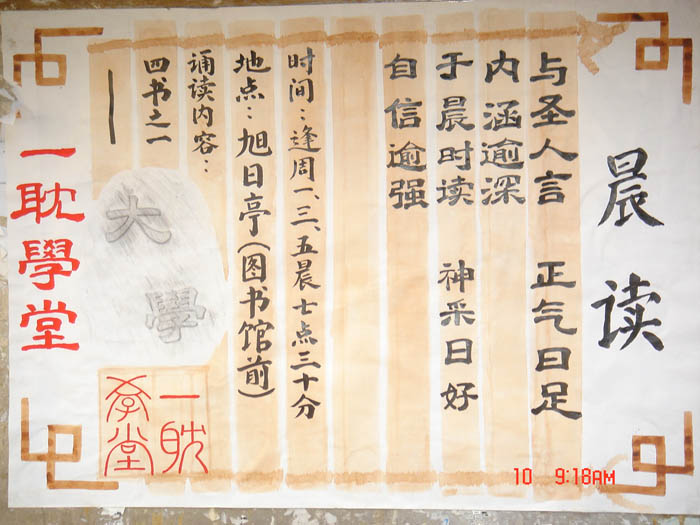 晨读
与圣人言 正气日足
内涵逾深
于晨时读 神采日好
自信逾强
时间：逢周一、三、五晨七点三十分
地点：旭日亭（图书馆前）
诵读内容：
四书之一
——
大學
一耽學堂
一耽
學堂
10 9:18AM